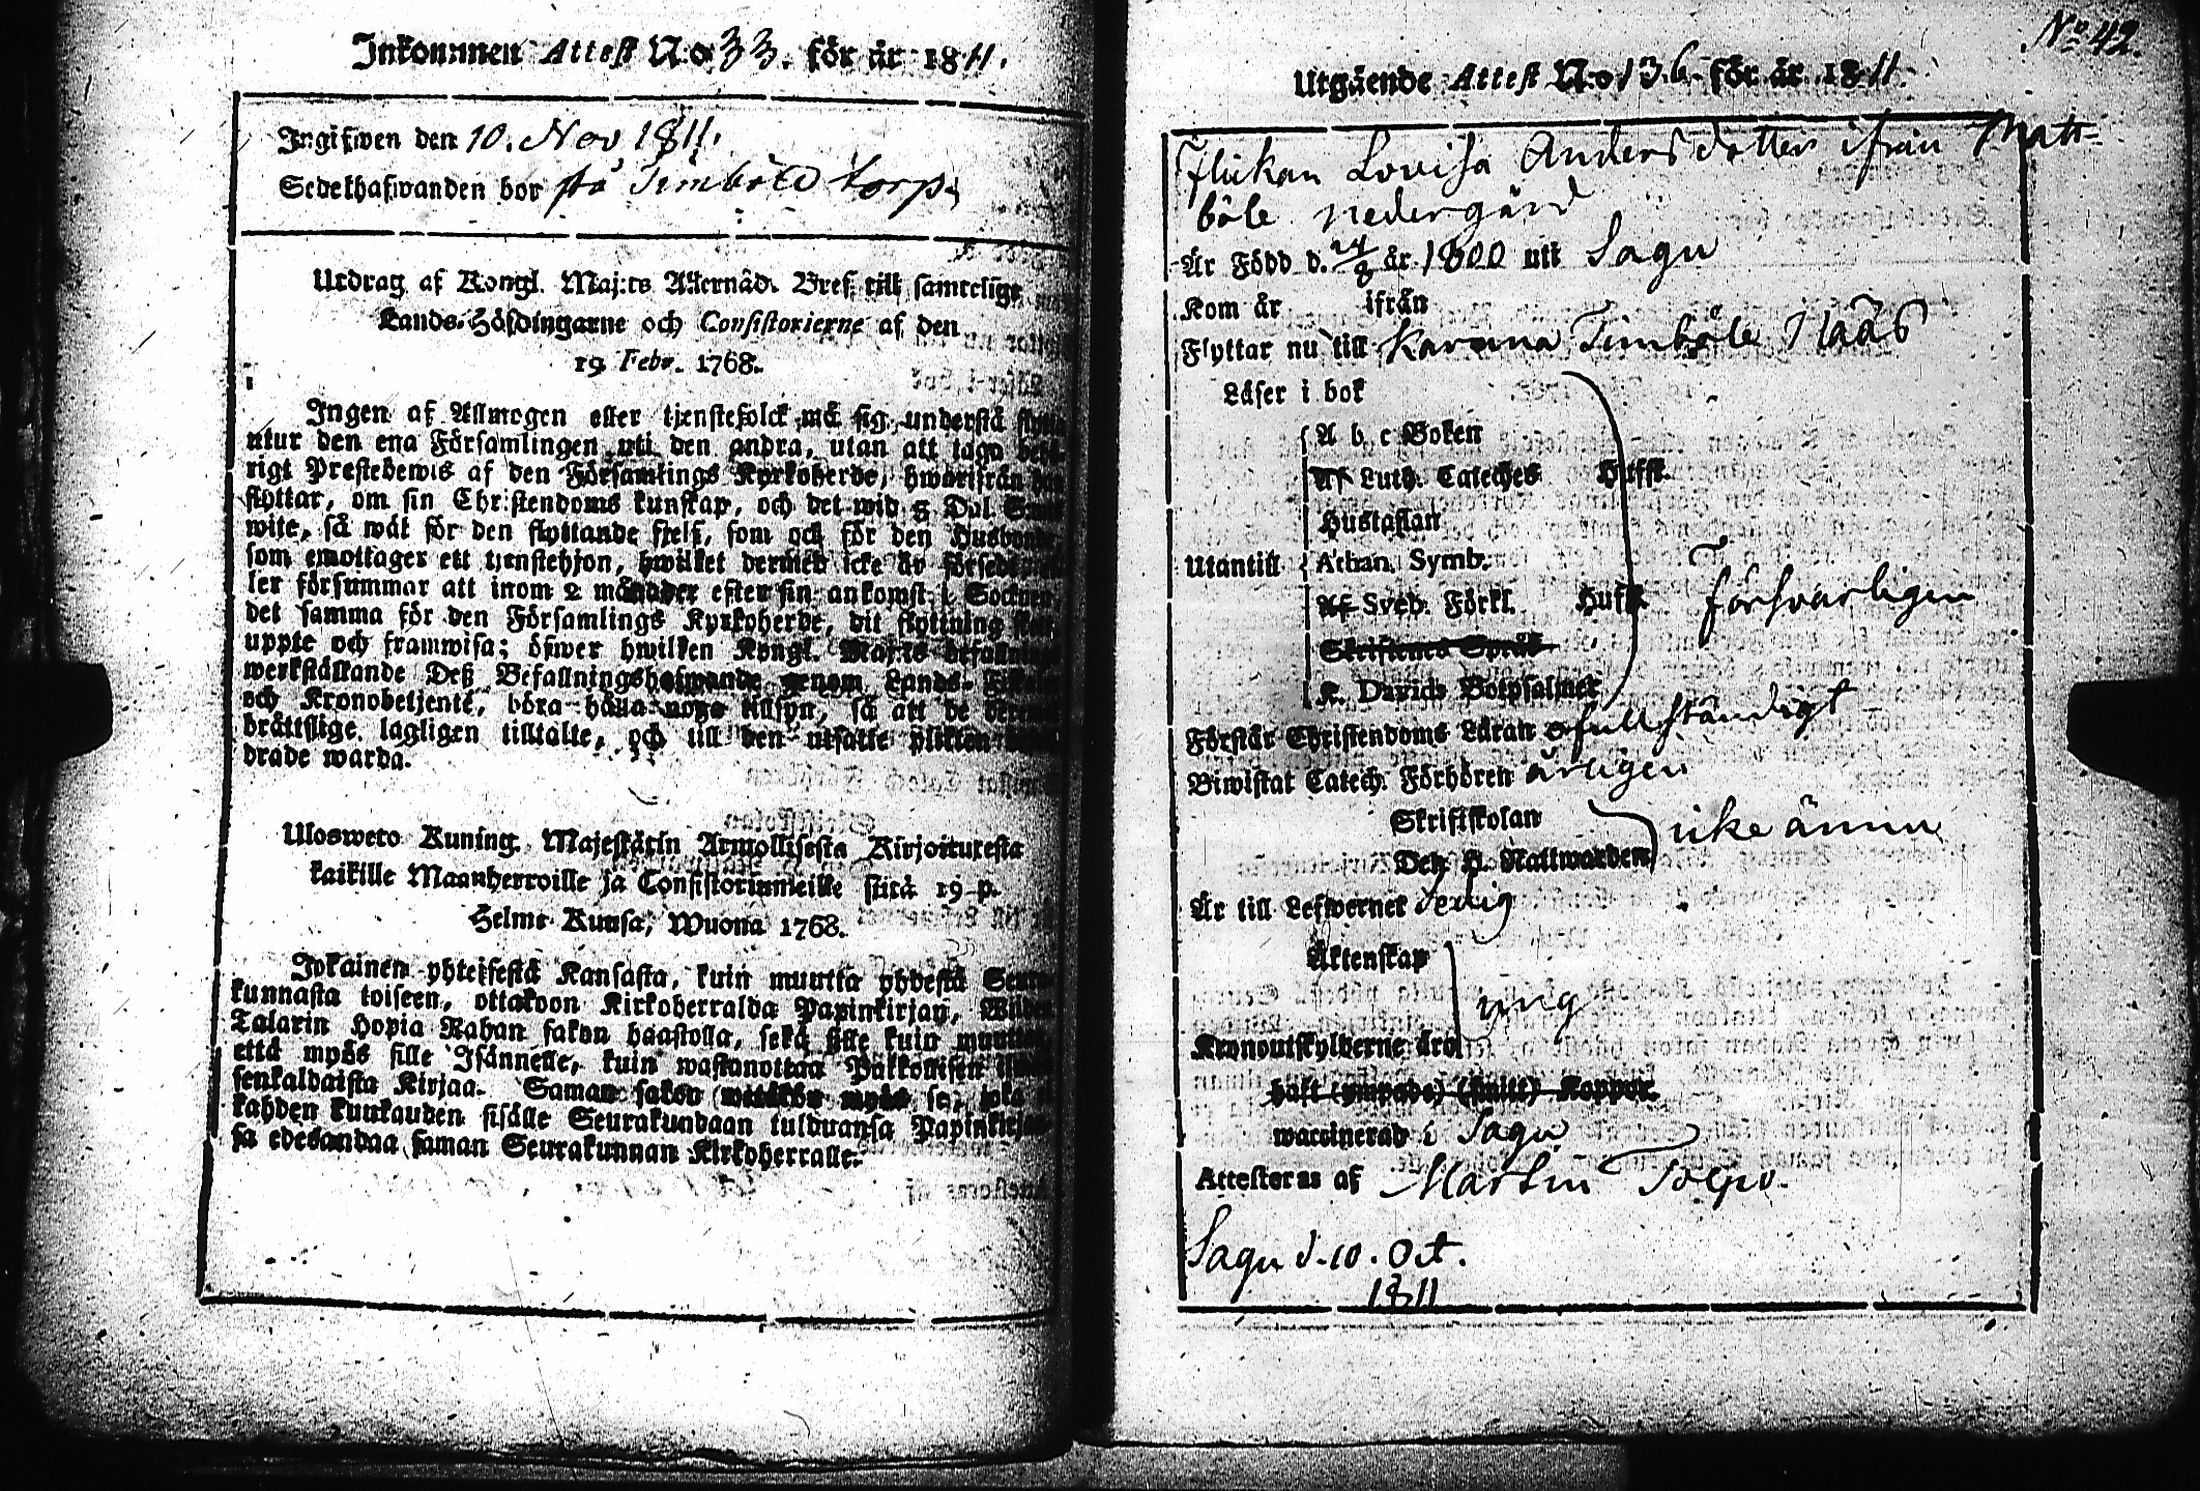 Inkommen Attest N:o 33. för år 1811.
Ingifwen den 10. Nov 1811.
Sedelhafwanden bor på Timböle torp
Utdrag af Kongl. Maj:ts Allernåd. Bref till samtelige
Lands-Höfdingarne och Consistorierne af den
19 Febr. 1768.
Ingen af Allmogen eller tjenstefolck må sig understå flytta
utur den ena Församlingen uti den andra, utan att taga
rigt Prestebewis af den Församlings Kyrkoherde, hwarifrån
flyttar, om sin Christendoms kunskap, och det wid 5 Dal.
wite, så wäl för den flyttande sjelf, som och för den
som emottager ett tjenstehjon, hwilket dermed icke är
ler försummar att inom 2 månader efter sin ankomst i Socknen
det samma för den Församlings Kyrkoherde, dit flyttning
uppte och framwisa; öfwer hwilken Kongl. Maj:ts befallning
werkställande Deß Befallningshafwande genom Lands-
och Kronobetjente, böra hålla noga tillsyn, så att de
brättslige lagligen tilltalte, och till den utsatte plikten
drade warda.
Ulosweto Kuning. Majestätin Armollisesta Kirjoituxesta
kaikille Maanherroille ja Consistoriumeille siitä 19 p.
Helme Kuusa, Wuona 1768.
Jokainen yhteisestä Kansasta, kuin muutta yhdestä
kunnasta toiseen, ottakoon Kirkoherralda Papinkirjan,
Talarin Hopia Rahan sakon haastolla, sekä sille kuin
että myös sille Isännelle, kuin wastanottaa Palkollisen
senkaldaista Kirjaa. Saman sakon wetäkön myös se, joka
kahden kuukauden sisälle Seurakundaan tulduansa
sa edesandaa saman Seurakunnan Kirkoherralle.
No 42.
Utgående Attest N:o 136 för år 1811
Flickan Lovisa Andersdotter ifrån Matt-
böle nedergård
Är Född d. 24/8 år 1800 uti Sagu
Kom år ifrån
Flyttar nu till Karuna Timböle
Läser i bok
A b c Boken
Af Luth. Cateches Huffst.
Hustaflan
Utantill Athan. Symb.
Af Sveb. Förkl. Huffst.
Försvarligen
Skriftenes Språk
K. Davids Botpsalmer
Förstår Christendoms Läran ofullständigt
Biwistat Catech. Förhören årligen
Skriftskolan
icke ännu
Den H. Nattwarden
Är till Lefwernet sedlig
Äktenskap
ung
Kronoutskylderne dro
haft (ympade) (smitt) Koppor.
waccinerad i Sagu
Attesteras af Martin Tolpo.
Sagu d. 10. Oct.
1811